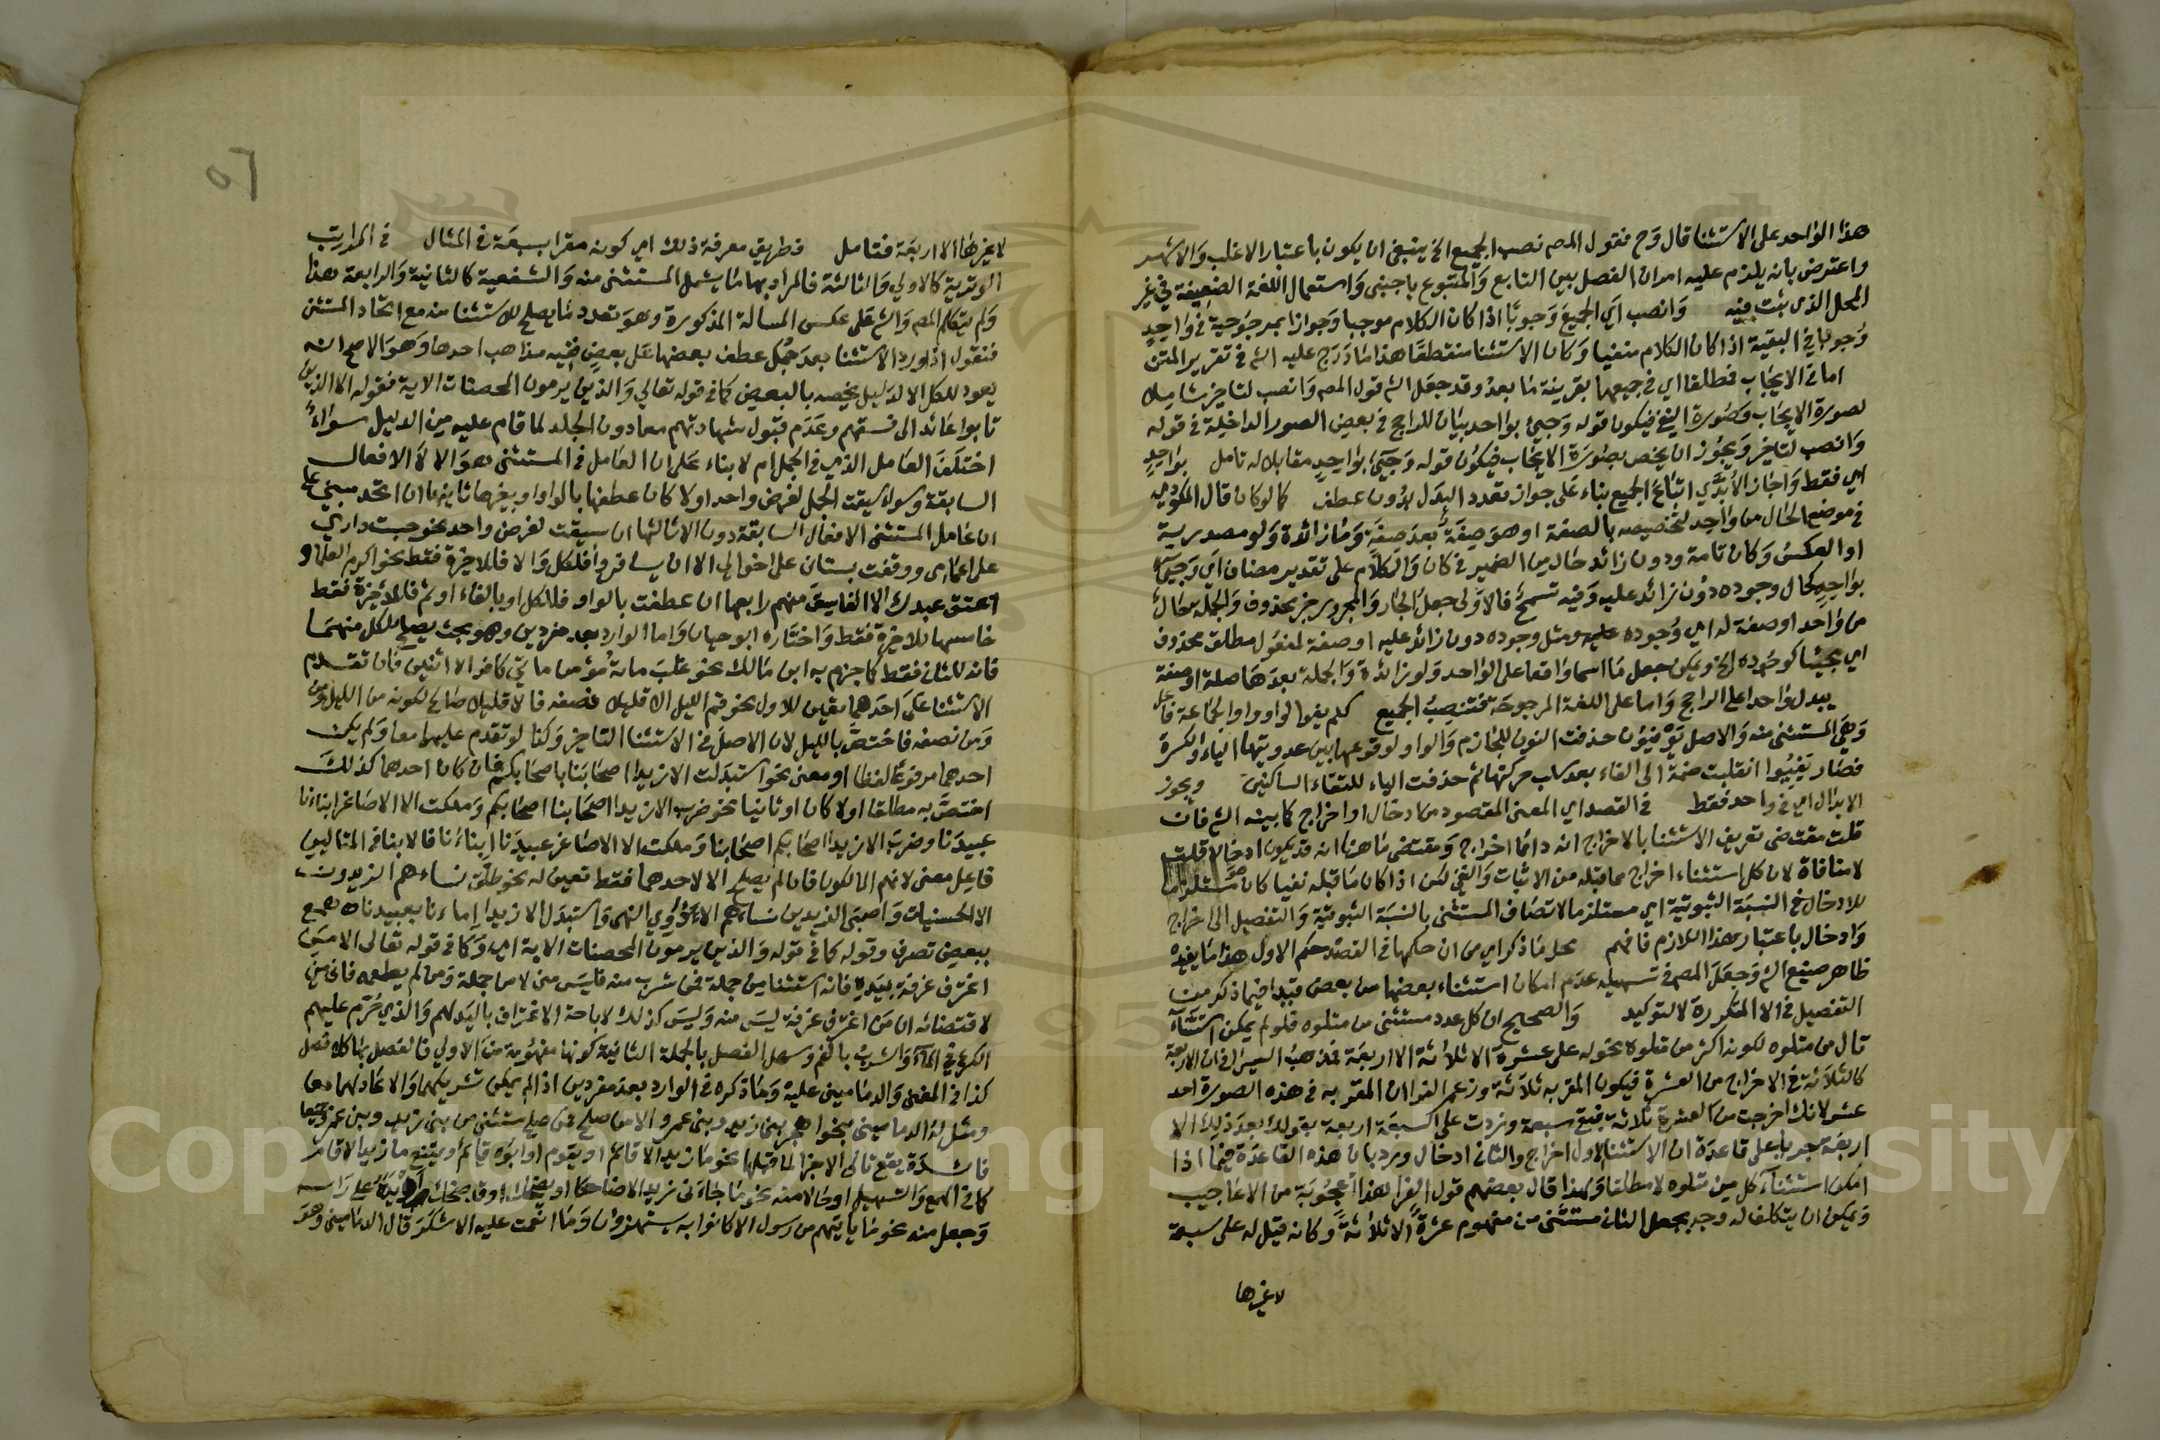 هذا الواحد على الاستثنا قال وح فقول المص نصب الجميع الخ ينبغى ان يكون باعتبار الاغلب والاشهر
واعترض بانه يلزم عليه امران الفصل بين التابع والمتبوع باجنبى واستعمال اللغة الضعيفة في غير
المحل الذى بنت فيه وانصب اي الجميع وجوبا اذا كان الكلام موجبا وجوازا بمرجوحية في واحد
وجوبا في البقية اذا كان الكلام منفيا وكان الاستثنا منقطعا هذا ما درج عليه الش في تقرير المتن
اما في الايجاب فطلقا اي في جميعها بقرينة ما بعد وقد جعل الش قول المص وانصب لتاخير شاملا
لصورة الايجاب وصورة النفي فيكون قوله وجئ بواحد بيان للراجح في بعض الصور الداخلة في قوله
وانصب لتاخير ويجوز ان يخص بصورة الايجاب فيكون قوله وجئ بواحد مقابلا له تامل بواحد
اي فقط واجاز الأبدي اتباع الجميع بناء على جواز تعدد البدل بدون عطف كما لو كان قال المكودي
في موضع الحال من واحد لتخصيصه بالصفة او هو صفة بعد صفة وما زائدة ولو مصدرية
او العكس وكان تامة ودون زائد حال من الضمير في كان والكلام على تقدير مضاف اي وجئ
بواحد كحال وجوده دون زائد عليه وفيه تسمح فالاولى جعل الجار والمجرور خبر محذوف والجملة حال
من واحد او صفة له اي وجوده عليه ومثل وجوده دون زائد عليه او صفة لمفعول مطلق محذوف
اي مجيئا كوجوده الخ ويمكن جعل ما اسما واقعا على الواحد ولو زائدة والجملة بعدها صلة او صفة
يبدل واحد على الراجح واما على اللغة المرجوحة فتنصب الجميع كلم يفوا لواو واو الجماعة فاعل
وهي المستثنى منه والاصل توفيون حذفت النون للجازم والواو لوقوعها بين عدوتيها الياء والكسرة
فصار يفيوا انقلبت ضمة الى الفاء بعد سلب حركتها ثم حذفت الياء للتقاء الساكنين ويجوز
الابدال اي في واحد فقط في القصد اي المعنى المقصود من ادخال او اخراج كما بينه الش فان
قلت مقتضى تعريف الاستثنا بالاخراج انه دائما اخراج ومقتضى ما هنا انه قد يكون ادخالا قلت
لا منافاة لان كل استثناء اخراج مما قبله من الاثبات والنفى لكن اذا كان ما قبله نفيا كان مستلزما
للادخال في النسبة الثبوتية اي مستلزما لاتصاف المستثنى بالنسبة الثبوتية والتفصيل الى اخراج
وادخال باعتبار هذا اللازم فافهم محل ما ذكر اي من ان حكمها في القصد حكم الاول هذا ما يفيده
ظاهر صنيع الش وجعل المص في تسهيله عدم امكان استثناء بعضها من بعض قيدا فيما ذكر من
التفصيل في الا المتكررة لا لتوكيد والصحيح ان كل عدد مستثنى من متلوه فلو لم يمكن استثناء
تال من متلوه لكونه اكثر من متلوه نحو له على عشرة الا ثلاثة الا اربعة فمذهب السيرافي ان الاربعة
كالثلاثة في الاخراج من العشرة فيكون المقر به ثلاثة وزعم الفرا ان المقر به في هذه الصورة احد
عشر لانك اخرجت من العشرة ثلاثة فبقى سبعة وزدت على السبعة اربعة بقولك بعد ذلك الا
اربعة جريا على قاعدة ان الاستثنا الاول اخراج والثانى ادخال ورد بان هذه القاعدة فيما اذا
امكن استثناء كل من متلوه لا مطلقا ولهذا قال بعضهم قول الفرا هذا اعجوبة من الاعاجيب
ويمكن ان يتكلف له وجه بجعل الثانى مستثنى من مفهوم عشرة الا ثلاثة وكانه قيل له على سبعة
لا غيرها
٥٦
لا غيرها الا اربعة فتامل فطريق معرفة ذلك اي كونه مقرا بسبعة في المثال في المراتب
الوترية كالاولى والثالثة فالمراد بها ما يشمل المستثنى منه والشفعية كالثانية والرابعة هذا
ولم يتكلم المص والش على عكس المسالة المذكورة وهو تعدد ما يصلح للاستثنا منه مع اتحاد المستثنى
فنقول اذا ورد الاستثنا بعد جمل عطف بعضها على بعض ففيه مذاهب احدها وهو الاصح انه
يعود للكل الا لدليل يخصه بالبعض كما في قوله تعالى والذين يرمون المحصنات الاية فقوله الا الذين
تابوا عائد الى فسقهم وعدم قبول شهادتهم معا دون الجلد لما قام عليه من الدليل سواء
اختلف العامل الذي في الجمل ام لا بناء على ان العامل في المستثنى هو الا لا الافعال
السابقة وسواء سيقت الجمل لغرض واحد او لا كان عطفها بالواو او بغيرها ثانيها ان اتحد مبني على
ان عامل المستثنى الافعال السابقة دون الا ثالثها ان سيقت لغرض واحد نحو حبست داري
على اعمامى ووقفت بستانى على اخوالى الا ان يسافروا فللكل والا فللاخيرة فقط نحو اكرم العلما و
اعتق عبدك الا الفاسق منهم رابعها ان عطفت بالواو فللكل او بالفاء او ثم فللاخيرة فقط
خامسها للاخيرة فقط واختاره ابو حيان واما الوارد بعد مفردين وهو بحيث يصلح لكل منهما
فانه للثانى فقط كما جزم به ابن مالك نحو غلب مائة مؤمن مائتى كافر الا اثنين فان تقدم
الاستثنا على احدهما تعين للاول نحو قم الليل الا قليلا نصفه فالا قليلا صالح لكونه من الليل ومن
ومن نصفه فاختص بالليل لان الاصل في الاستثنا التاخير وكذا لو تقدم عليهما معا ولم يكن
احدهما مرفوعا لفظا او معنى نحو استبدلت الا زيدا اصحابنا باصحابكم فان كان احدهما كذلك
اختص به مطلقا اولا كان او ثانيا نحو ضرب الا زيدا اصحابنا اصحابكم وملكت الا الاصاغر ابناءنا
عبيدنا وضرب الا زيدا اصحابكم اصحابنا وملكت الا الاصاغر عبيدنا ابناءنا فالابنا في المثالين
فاعل معنى لانهم المالكون فان لم يصلح الا لاحدهما فقط تعين له نحو طلق نساءهم الزيدون
الا الحسنيات واصبى الزيدين نساءهم الا ذوي النهى واستبدل الا زيدا اماءنا بعبيدنا اه همع
ببعض تصرف وقوله كما في قوله والذين يرمون المحصنات الاية اي وكما في قوله تعالى الا من
اغترف غرفة بيده فانه استثنا من جملة فمن شرب منه فليس منى لا من جملة ومن لم يطعمه فانه منى
لاقتضائه ان من اغترف غرفة ليس منه وليس كذلك لاباحة الاغتراف باليد لهم والذي حرم عليهم
الكرع في الماء والشرب بالفم وسهل الفصل بالجملة الثانية كونها مفهومة من الاولى فالفصل بها كلا فصل
كذا في المغنى والدمامينى عليه وما ذكره في الوارد بعد مفردين اذا لم يمكن تشريكهما والا عاد لهما معا
ومثل له الدمامينى بنحو اهجر بنى زيد وبنى عمرو الا من صلح فمن صلح مستثنى من بنى زيد وبنى عمرو معا
فائدة يقع تالى الا خبرا لما قبلها نحو ما زيد الا قائم او يقوم او ابوه قائم ويمتنع ما زيد الا قام
كما في الهمع والتسهيل او حالا منه نحو ما جاءنى زيد الا ضاحكا او يضحك او قد ضحك او يده على راسه
وجعل منه نحو ما يأتيهم من رسول الا كانوا به يستهزؤن وما انعمت عليه الا شكر قال الدمامينى وهو